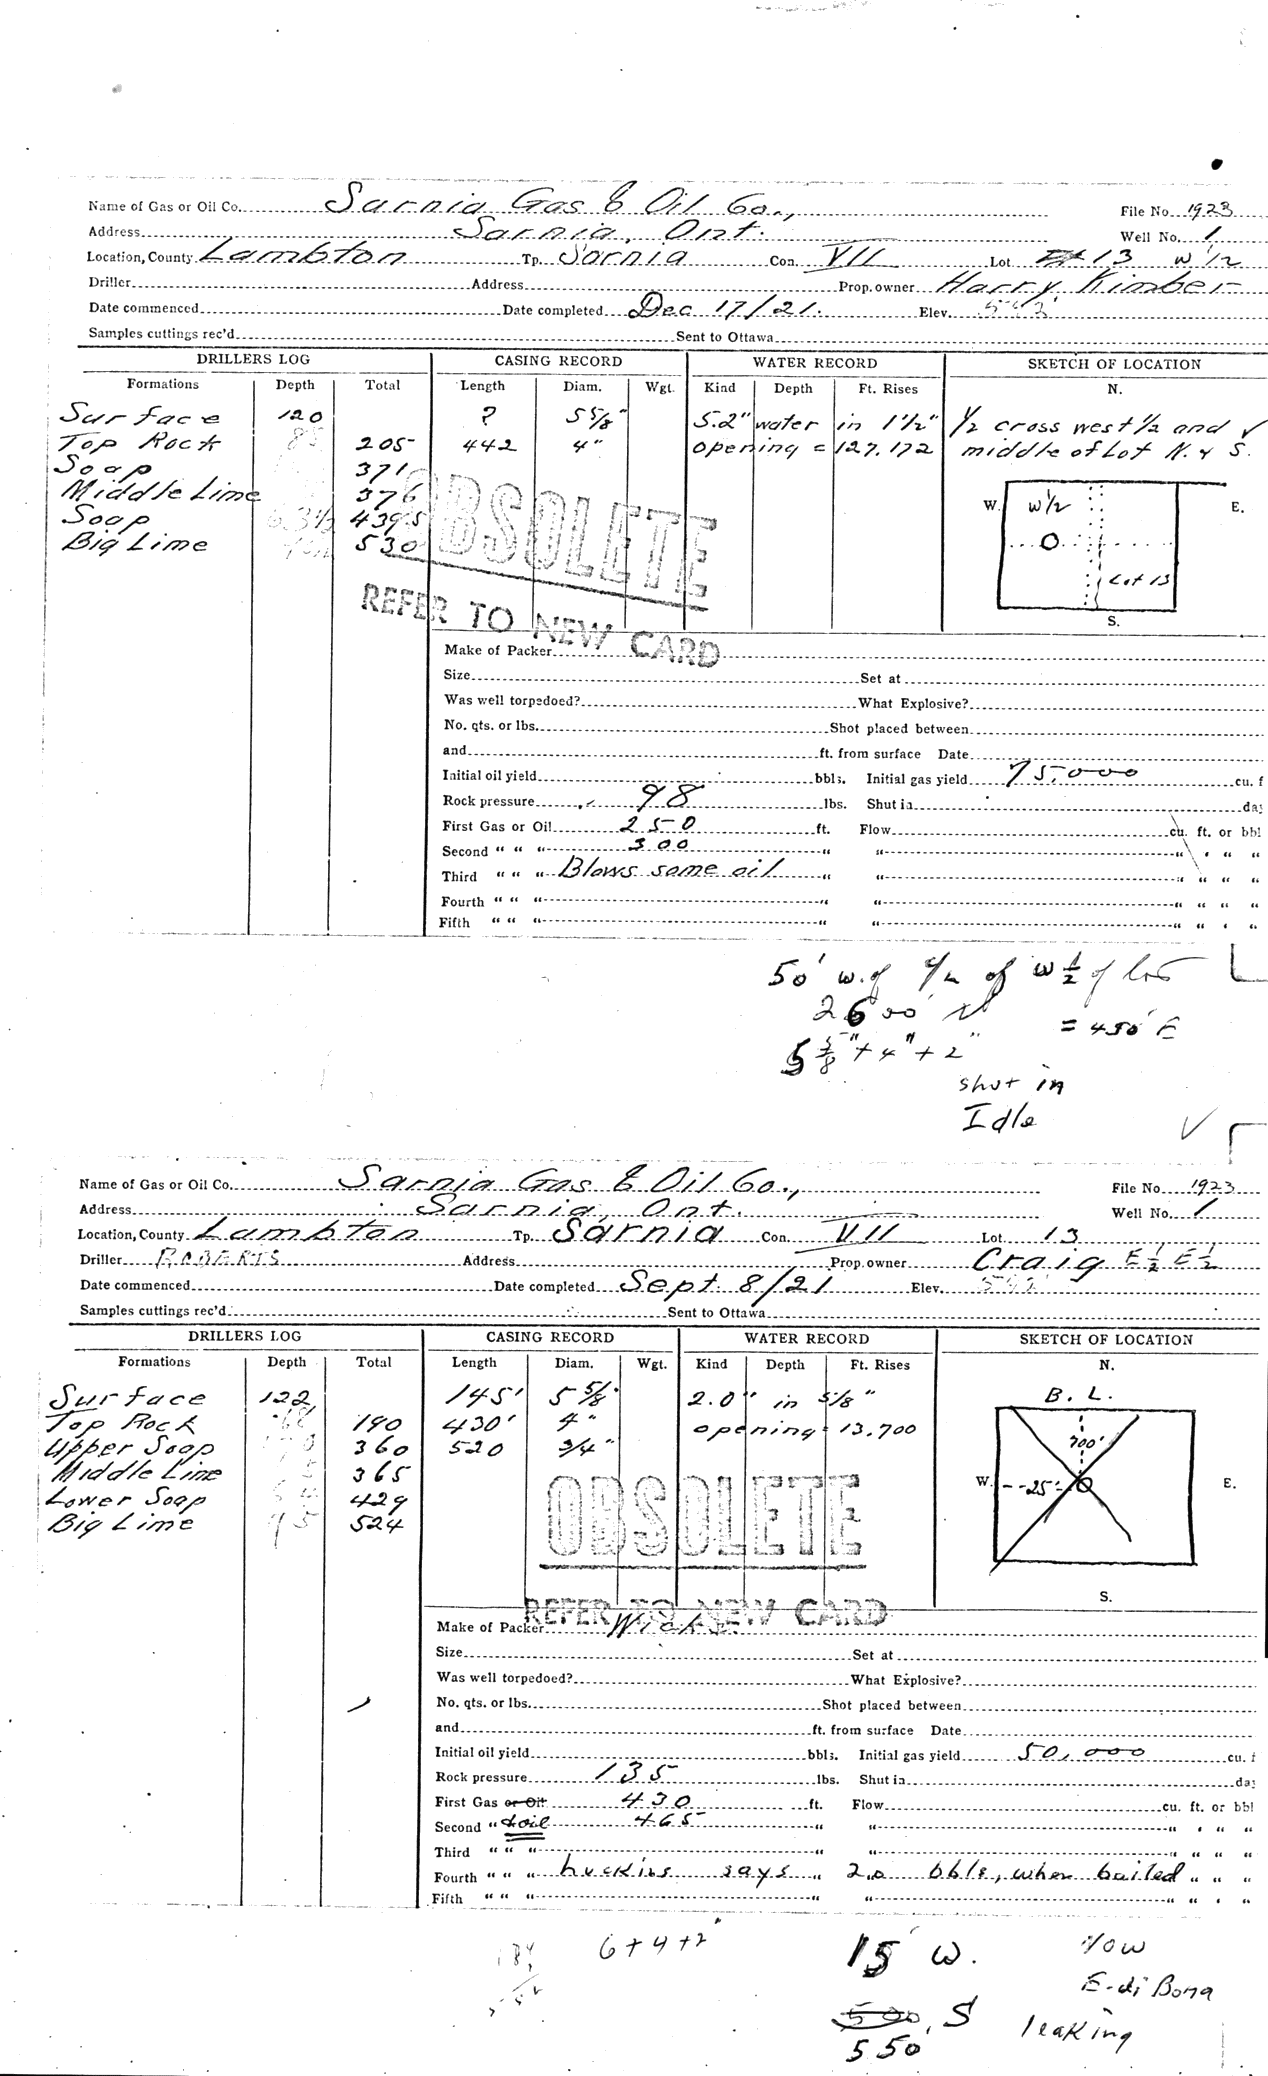 Name of Gas or Oil Co. Sarnia Gas & Oil Co., File No. 1923
Address Sarnia, Ont. Well No. 1
Location, County Lambton Tp. Sarnia Con. VII Lot 13 W 1/2
Driller Address Prop. owner Harry Kimber
Date commenced Date completed Dec 17/21. Elev.
Samples cuttings rec'd Sent to Ottawa
DRILLERS LOG CASING RECORD WATER RECORD SKETCH OF LOCATION
Formations Depth Total Length Diam. Wgt. Kind Depth Ft. Rises N.
Surface 120 ? 5 5/8" 5.2" water in 1 1/2" 1/2 cross west 1/2 and
Top Rock 85 205 442 4" opening = 127,172 middle of Lot N. & S.
Soap 371
Middle Lime 376 W. W 1/2 E.
Soap 63 1/2 439.5
Big Lime 530
Lot 13
S.
OBSOLETE
REFER TO NEW CARD
Make of Packer
Size Set at
Was well torpedoed? What Explosive?
No. qts. or lbs. Shot placed between
and ft. from surface Date
Initial oil yield bbls. Initial gas yield 75,000 cu. f
Rock pressure 98 lbs. Shut in da
First Gas or Oil 250 ft. Flow cu. ft. or bbl
Second " " " 300 " " " " "
Third " " " Blows some oil " " " " "
Fourth " " " " " " " "
Fifth " " " " " " " "
50' w. of c/L of W 1/2 of lot
2600' N = 450' E
5 5/8" + 4" + 2"
shut in
Idle
Name of Gas or Oil Co. Sarnia Gas & Oil Co., File No. 1923
Address Sarnia, Ont. Well No. 1
Location, County Lambton Tp. Sarnia Con. VII Lot 13
Driller ROBERTS Address Prop. owner Craig E 1/2 E 1/2
Date commenced Date completed Sept. 8/21 Elev.
Samples cuttings rec'd Sent to Ottawa
DRILLERS LOG CASING RECORD WATER RECORD SKETCH OF LOCATION
Formations Depth Total Length Diam. Wgt. Kind Depth Ft. Rises N.
Surface 122 145' 5 5/8" 2.0" in 5/8" B. L.
Top Rock 68 190 430' 4" opening = 13,700
Upper Soap 170 360 520 3/4" 700'
Middle Lime 5 365
Lower Soap 64 429 W. 25' E.
Big Lime 95 524
S.
OBSOLETE
REFER TO NEW CARD
Make of Packer
Size Set at
Was well torpedoed? What Explosive?
No. qts. or lbs. Shot placed between
and ft. from surface Date
Initial oil yield bbls. Initial gas yield 50,000 cu. f
Rock pressure 135 lbs. Shut in da
First Gas or Oil 430 ft. Flow cu. ft. or bbl
Second " & oil 465 " " " " "
Third " " " " " " " "
Fourth " " " huckins says " 2.0 bbls, when bailed " " "
Fifth " " " " " " " "
6 + 4 + 2"
15' W. Now
E-di Bona
500, S leaking
550